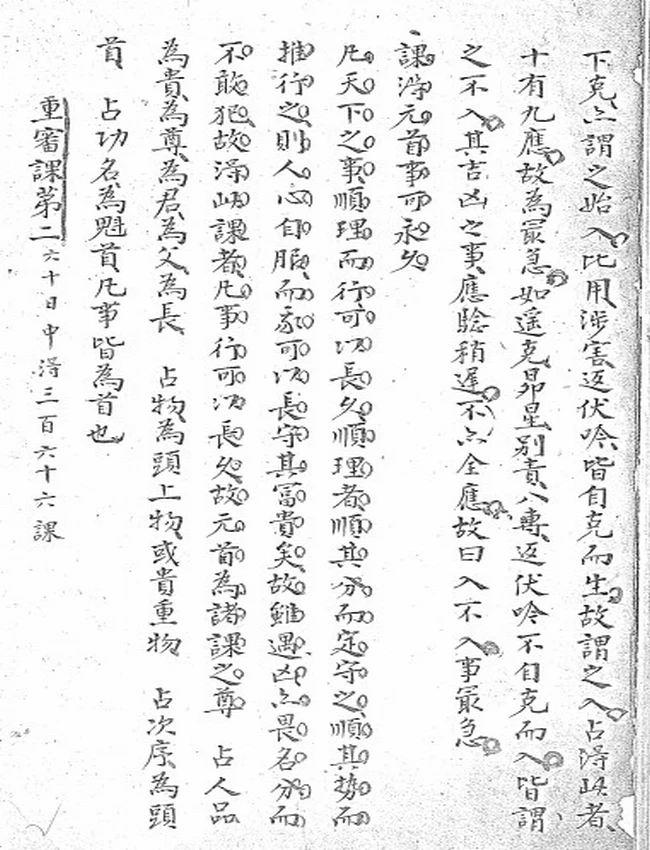 下克亦謂之始入比用涉害返伏吟皆自克而生故謂之入占得此者
十有九應故為最急如遥克昴星别責八專返伏吟不自克而入皆謂
之不入其吉凶之事應驗稍遅不亦全應故曰入不入事最急
課得元首事可永久
凡天下之事順理而行可以長久順理者順其分而定守之順其势而
推行之則人心自服而家可以長守其冨貴矣故雖遇凶亦畏名分而
不敢犯故得此課者凡事行可以長久故元首為諸課之尊 占人品
為貴為尊為君為父為長 占物為頭上物或貴重物 占次序為頭
首 占功名為魁首凡事皆為首也
重審課第二 六十日中得三百六十六課